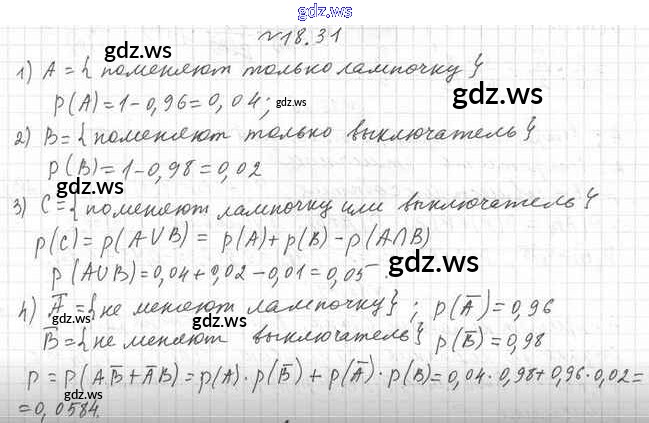 gdz.ws
№18.31
gdz.ws
1) A = { поменяют только лампочку }
p(A) = 1 - 0,96 = 0,04; gdz.ws
gdz.ws
2) B = { поменяют только выключатель }
p(B) = 1 - 0,98 = 0,02
gdz.ws
3) C = { поменяют лампочку или выключатель }
p(C) = p(A∪B) = p(A) + p(B) - p(A∩B)
gdz.ws
p(A∪B) = 0,04 + 0,02 - 0,01 = 0,05
4) A̅ = { не меняют лампочку } ; p(A̅) = 0,96
gdz.ws
gdz.ws
B̅ = { не меняют выключатель } p(B̅) = 0,98
gdz.ws
p = p(AB̅ + A̅B) = p(A) · p(B̅) + p(A̅) · p(B) = 0,04 · 0,98 + 0,96 · 0,02 =
gdz.ws
= 0,0584.